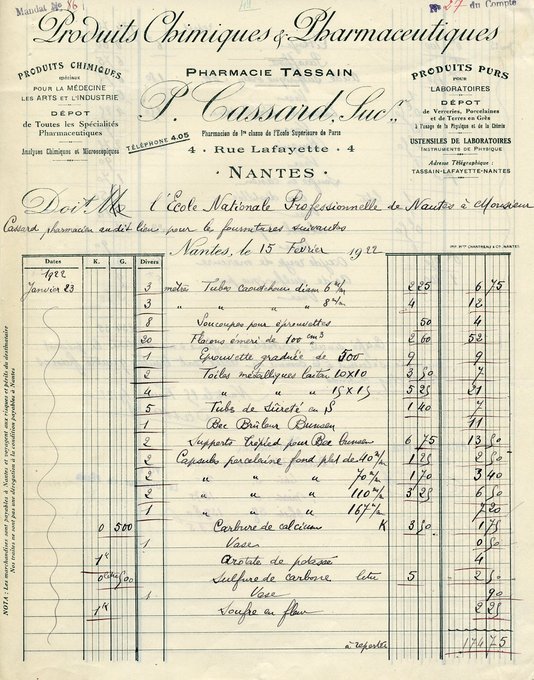 Mandat No 86
No 27 du Compte
Produits Chimiques & Pharmaceutiques
PRODUITS CHIMIQUES
spéciaux
POUR LA MÉDECINE
LES ARTS ET L'INDUSTRIE
DÉPOT
de Toutes les Spécialités
Pharmaceutiques
Analyses Chimiques et Microscopiques
PHARMACIE TASSAIN
P. Cassard, Sucr.
Pharmacien de 1re classe de l'Ecole Supérieure de Paris
TÉLÉPHONE 4.05
4 - Rue Lafayette - 4
NANTES
PRODUITS PURS
POUR
LABORATOIRES
DÉPOT
de Verreries, Porcelaines
et de Terres en Grès
à l'usage de la Physique et de la Chimie
USTENSILES DE LABORATOIRES
INSTRUMENTS DE PHYSIQUE
Adresse Télégraphique :
TASSAIN-LAFAYETTE-NANTES
Doit M l'École Nationale Professionnelle de Nantes à Monsieur
Cassard pharmacien audit lieu pour les fournitures suivantes
Nantes, le 15 Février 1922
IMP. MTTE CHANTREAU & Cie, NANTES
Dates K. G. Divers
1922
Janvier 23 3 mètres Tubes caoutchouc diam 6 m/m 2 25 6 75
3 " " " 8 m/m 4 12
8 Soucoupes pour éprouvettes 50 4
20 Flacons émeri de 100 cm3 2 60 52
1 Eprouvette graduée de 500 9 9
2 Toiles métalliques laiton 10x10 3 50 7
4 " " " 15x15 5 25 21
5 Tubs de sûreté en S 1 40 7
1 Bec Brûleur Bunsen 11
2 Supports Trépied pour Bec bunsen 6 75 13 50
2 Capsules porcelaine fond plat de 40 m/m 1 25 2 50
2 " " " 70 m/m 1 70 3 40
2 " " " 110 m/m 3 25 6 50
1 " " " 167 m/m 7 20
0 500 Carbure de calcium K 3 50 1 75
1 Vase 0 50
1K Azotate de potasse 4
0 litre 500 Sulfure de carbone litre 5 2 50
1 Vase 90
1K Soufre en fleur 2 25
à reporter 174 75
NOTA : Les marchandises sont payables à Nantes et voyagent aux risques et périls du destinataire
Nos traites ne sont pas une dérogation à la condition payables à Nantes